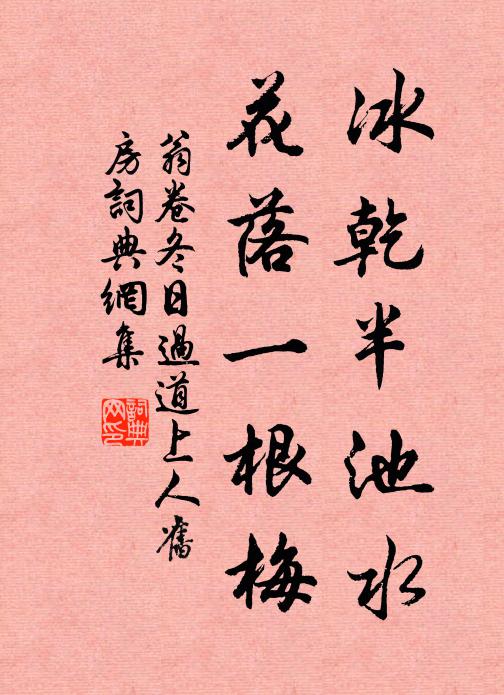 冰乾半池水
花落一根梅
翁卷冬日過道上人舊
房詞典網集
詞典
网印